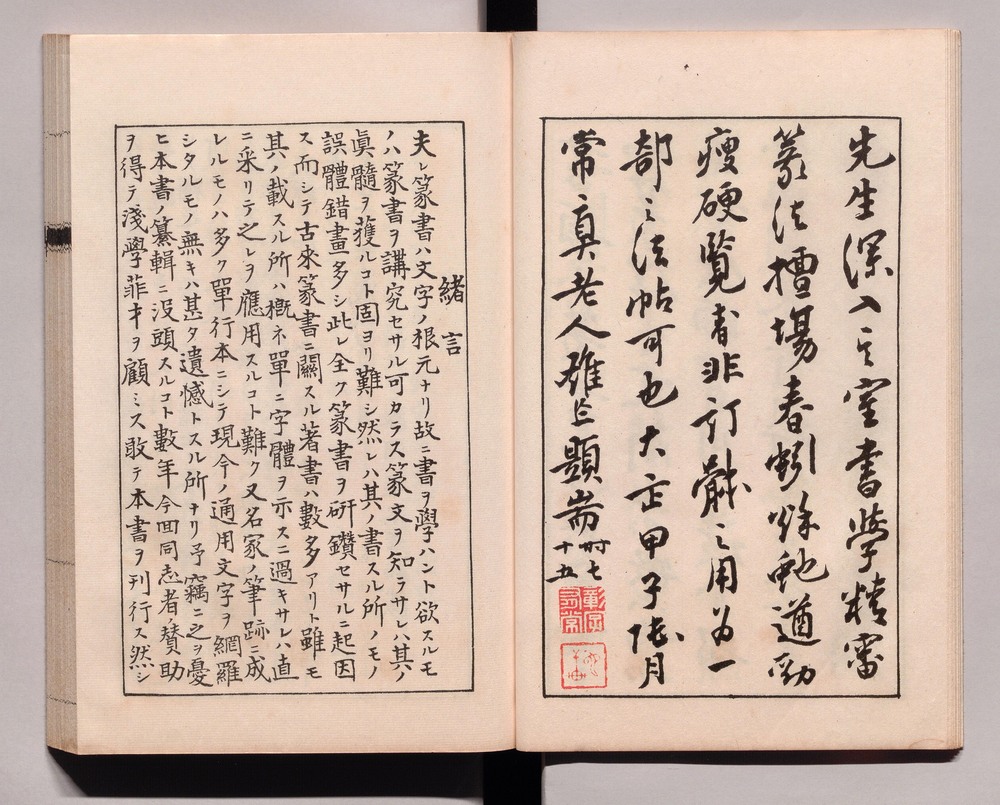 先生深入其室書學精審
篆法擅場春蚓蜍虵遒勁
瘦硬覽者非訂譌之用為一
部之法帖可也大正甲子陸月
常真老人雖題耑
時七
十五
緒言
夫レ篆書ハ文字ノ根元ナリ故ニ書ヲ學ハント欲スルモ
ノハ篆書ヲ講究セサル可カラス篆文ヲ知ラサレハ其ノ
眞髓ヲ獲ルコト固ヨリ難シ然レハ其ノ書スル所ノモノ
誤體錯畫多シ此レ全ク篆書ヲ研鑽セサルニ起因
ス而シテ古來篆書ニ關スル著書ハ數多アリト雖モ
其ノ載スル所ハ概ネ單ニ字體ヲ示スニ過キサレハ直
ニ采リテ之レヲ應用スルコト難ク又名家ノ筆跡ニ成
レルモノハ多ク單行本ニシテ現今ノ通用文字ヲ網羅
シタルモノ無キハ甚タ遺憾トスル所ナリ予竊ニ之ヲ憂
ヒ本書ノ纂輯ニ沒頭スルコト數年今回同志者ノ賛助
ヲ得テ淺學菲才ヲ顧ミス敢テ本書ヲ刊行ス然シ